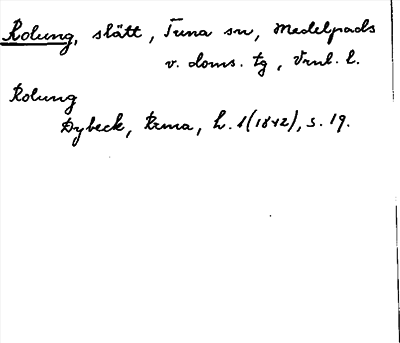 Rolung, slätt, Tuna sn, Medelpads
v. doms. tg, Vrnl. l.
Rolung
Dybeck, Runa, h. 1(1842), s. 19.